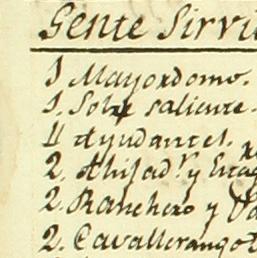 Gente Sirvi
1 Mayordomo.
1. Sobre saliente.
4 Ayudantes.
2. Ahijad.^s y
2. Ranchero y
2. Cavallerango